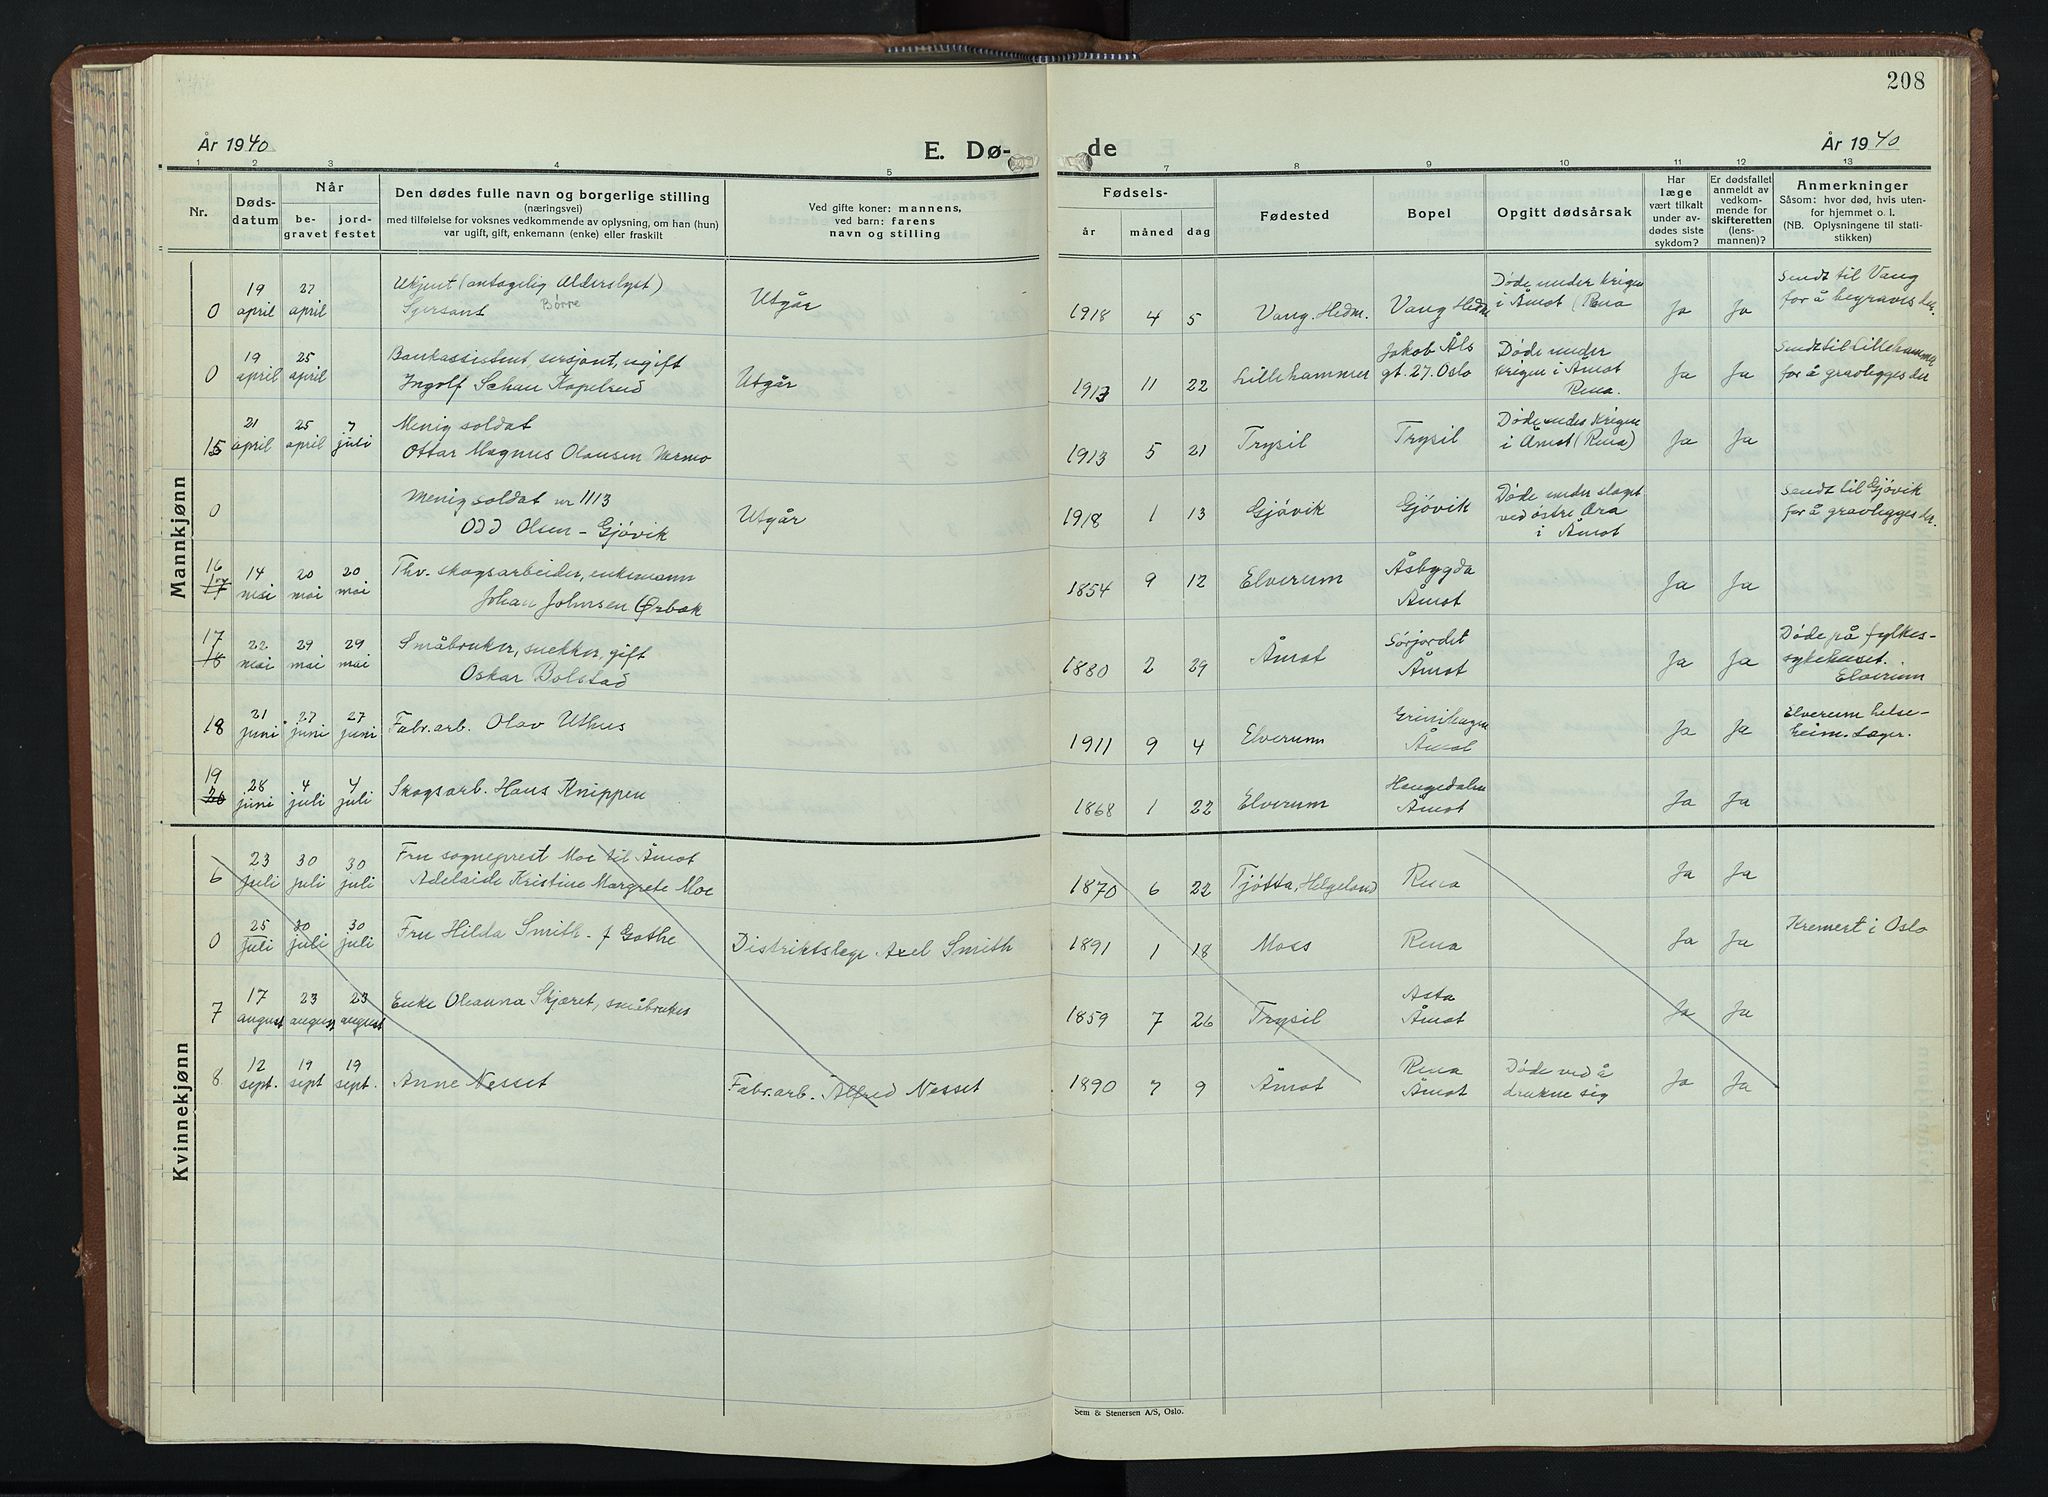 208
År 1940
E. Dø-
de
År 1940
1 2 3 4 5 7 8 9 10 11 12 13
Nr.
Døds-
datum
Når
be-
gravet
jord-
festet
Den dødes fulle navn og borgerlige stilling
(næringsvei)
med tilføielse for voksnes vedkommende av oplysning, om han (hun)
var ugift, gift, enkemann (enke) eller fraskilt
Ved gifte koner: mannens,
ved barn: farens
navn og stilling
Fødsels-
år
måned
dag
Fødested
Bopel
Opgitt dødsårsak
Har
læge
vært tilkalt
under av-
dødes siste
sykdom?
Er dødsfallet
anmeldt av
vedkom-
mende for
skifteretten
(lens-
mannen)?
Anmerkninger
Såsom: hvor død, hvis uten-
for hjemmet o. l.
(NB. Oplysningene til stati-
stikken)
Mannkjønn
0 19 april 27 april Ukjent (antagelig Alderslyst)
Sersjant Børre Utgår 1918 4 5 Vang. Hedm. Vang Hedm Døde under krigen
i Åmot (Rena Ja Ja Sendt til Vang
for å begraves der.
0 19 april 25 april Bankassistent, sersjant, ugift
Ingolf Schau Kapelrud Utgår 1913 11 22 Lillehammer Jakob Åls
gt. 27. Oslo Døde under
krigen i Åmot
Rena. Ja Ja Sendt til Lillehammer
for å gravlegges der
15 21 april 25 april 7 juli Menig soldat
Ottar Magnus Olausen Varmo 1913 5 21 Trysil Trysil Døde under krigen
i Åmot (Rena) Ja Ja
0 Menig soldat nr 1113
Odd Olsen - Gjøvik Utgår 1918 1 13 Gjøvik Gjøvik Døde under slaget
ved østre Æra
i Åmot Sendt til Gjøvik
for å gravlegges der.
16 14 mai 20 mai 20 mai Thv. skogsarbeider, enkemann
Johan Johnsen Ørbæk 1854 9 12 Elverum Åsbygda
Åmot Ja Ja
17 18 22 mai 29 mai 29 mai Småbruker, snekker, gift
Oskar Bolstad 1880 2 29 Åmot Sørjordet
Åmot Ja Ja Døde på fylkes-
sykehuset.
Elverum
18 21 juni 27 juni 27 juni Fabr.arb. Olav Uthus 1911 9 4 Elverum Grinihagen
Åmot Ja Ja Elverum helse-
heim.
19 20 28 juni 4 juli 4 juli Skogsarb. Hans Knippen 1868 1 22 Elverum Haugedalen
Åmot Ja Ja
Kvinnekjønn
6 23 juli 30 juli 30 juli Fru sogneprest Moe til Åmot
Adelaide Kristine Margrete Moe 1870 6 22 Tjøtta, Helgeland Rena Ja Ja
0 25 juli 30 juli 30 juli Fru Hilda Smith - f Gothe Distriktslæge Axel Smith 1891 1 18 Moss Rena Ja Ja Kremert i Oslo
7 17 august 23 august 23 august Enke Oleanna Skjæret, småbruker 1859 7 26 Trysil Åsta
Åmot Ja Ja
8 12 sept. 19 sept 19 sept. Anne Nesset Fabr.arb. Alfred Nesset 1890 7 9 Åmot Rena
Åmot Døde ved å
drukne sig Ja Ja
Sem & Stenersen A/S, Oslo.